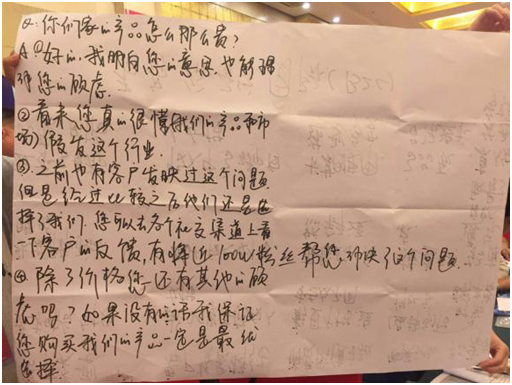 Q:你们家的产品怎么那么贵?
A ①好的,我明白您的意思,也能理
解您的顾虑.
②看来您真的很懂我们的产品和市
场)假发这个行业.
③之前也有客户反映过这个问题.
但是经过比较之后他们还是选
择了我们.您可以去各个社交渠道上看
一下客户的反馈,有将近100W粉丝帮您解决了这个问题.
④除了价格您还有其他的顾
虑吗?如果没有的话我保证
您购买我们的产品一定是最优
选择.